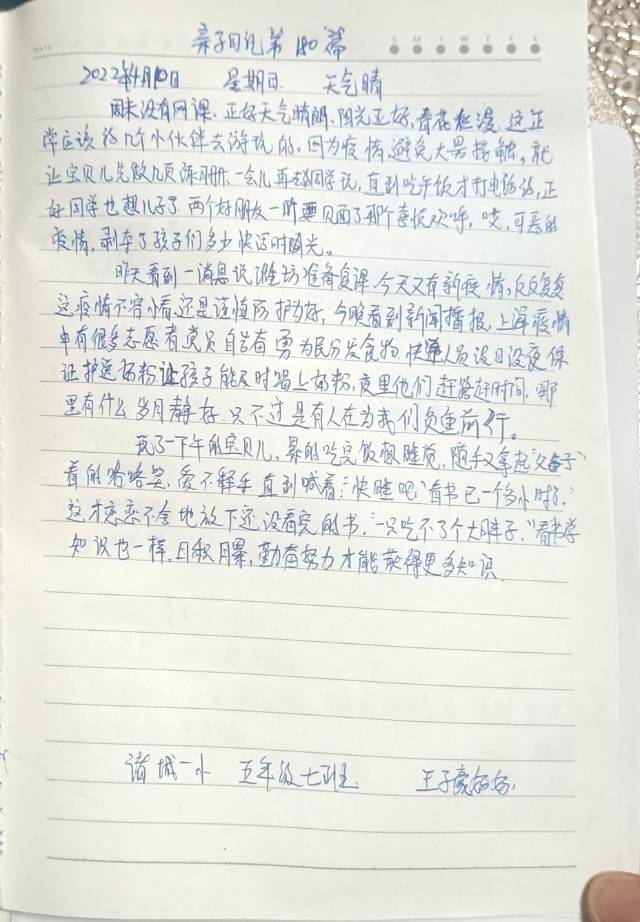 亲子日记第180篇
DATE S M T W T F S
2022年4月10日 星期日 天气晴
周末没有网课.正好天气晴朗.阳光正好,春花烂漫.这正
常应该约几个小伙伴去游玩的,因为疫情,避免大量接触,就
让宝贝儿先做几页练习册.一会儿再去找同学玩,直到吃午饭才打电话,正
好同学也想儿子了.两个好朋友一听要见面了那个喜悦欢呼,唉,可恶的
疫情,剥夺了孩子们多少快活时光。
昨天看到一消息说潍坊准备复课.今天又有新疫情,反反复复
这疫情不容小看,还是谨慎防护为好,今晚看到新闻播报,上海疫情
中有很多志愿者党员自告奋勇为居民分发食物.快递人员没日没夜保
证护送奶粉让孩子能及时喝上奶粉.夜里他们赶路赶时间.哪
里有什么岁月静好.只不过是有人在为我们负重前行。
玩了一下午的宝贝儿.累的吃完饭想睡觉,随手又拿起"父与子"
看的哈哈笑.爱不释手.直到喊着:"快睡吧"看书已一个多小时了.
这才恋恋不舍地放下还没看完的书."一口吃不了个大胖子."看书学
知识也一样,日积月累,勤奋努力才能获得更多知识.
诸城一小 五年级七班 王子豪妈妈.